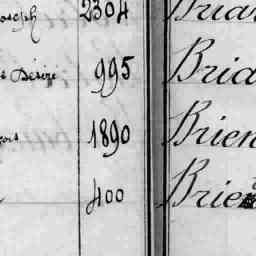 oseph 2304 Briar
Désiré 995 Bria
1890 Brien
400 Brie